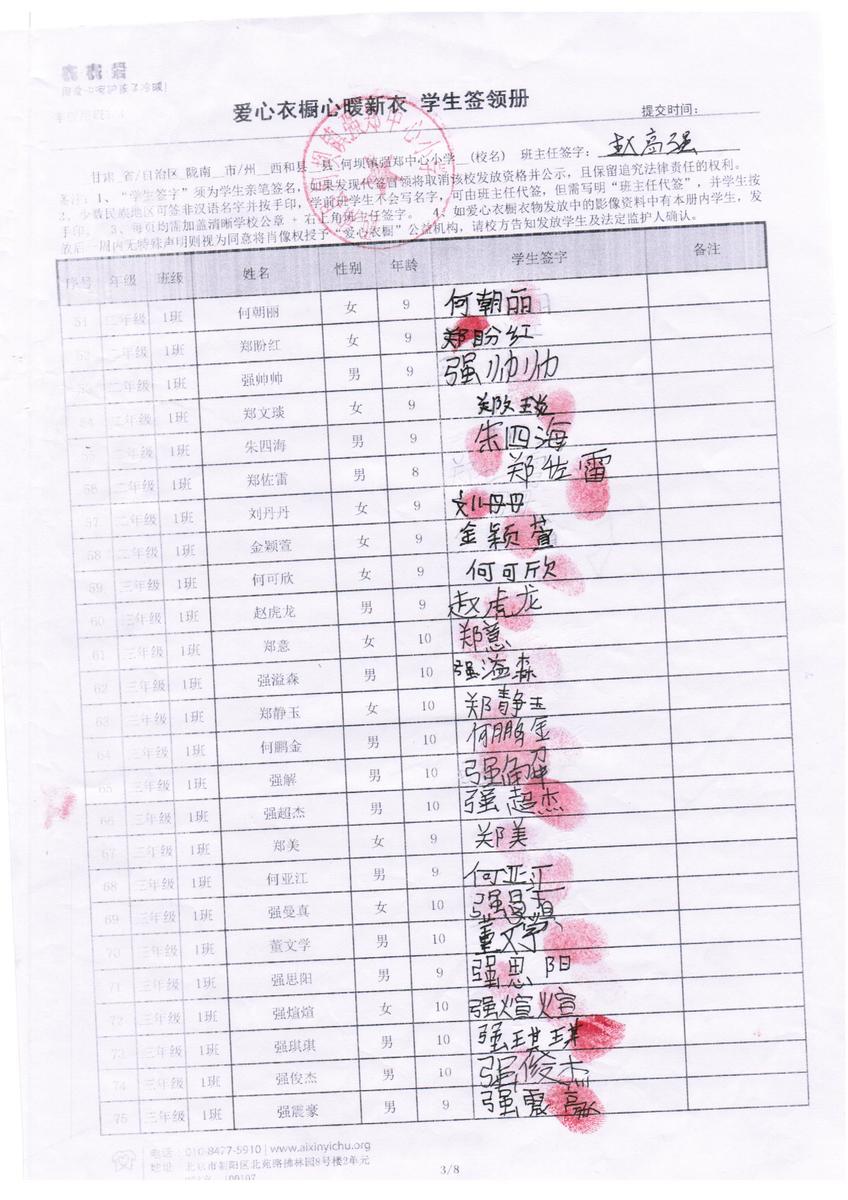 爱心衣橱心暖新衣 学生签领册
提交时间:
甘肃_省/自治区_陇南__市/州__西和县__县_何坝镇强郑中心小学__(校名) 班主任签字: 赵高强
备注: 1、“学生签字”须为学生亲笔签名, 如果发现代签冒领将取消该校发放资格并公示, 且保留追究法律责任的权利。
2、少数民族地区可签非汉语名字并按手印, 学前班学生不会写名字, 可由班主任代签, 但需写明“班主任代签”, 并学生按
手印。 3、每页均需加盖清晰学校公章 + 右上角班主任签字。 4、如爱心衣橱衣物发放中的影像资料中有本册内学生, 发
放后一周内无特殊声明则视为同意将肖像权授予“爱心衣橱”公益机构, 请校方告知发放学生及法定监护人确认。
序号 年级 班级 姓名 性别 年龄 学生签字 备注
51 二年级 1班 何朝丽 女 9 何朝丽
52 二年级 1班 郑盼红 女 9 郑盼红
53 二年级 1班 强帅帅 男 9 强帅帅
54 二年级 1班 郑文琰 女 9 郑文琰
55 二年级 1班 朱四海 男 9 朱四海
56 二年级 1班 郑佐雷 男 8 郑佐雷
57 二年级 1班 刘丹丹 女 9 刘丹丹
58 二年级 1班 金颖萱 女 9 金颖萱
59 三年级 1班 何可欣 女 9 何可欣
60 三年级 1班 赵虎龙 男 9 赵虎龙
61 三年级 1班 郑意 女 10 郑意
62 三年级 1班 强溢森 男 10 强溢森
63 三年级 1班 郑静玉 女 10 郑静玉
64 三年级 1班 何鹏金 男 10 何鹏金
65 三年级 1班 强解 男 10 强解
66 三年级 1班 强超杰 男 10 强超杰
67 三年级 1班 郑美 女 9 郑美
68 三年级 1班 何亚江 男 9 何亚江
69 三年级 1班 强曼真 女 10 强曼真
70 三年级 1班 董文学 男 10 董文学
71 三年级 1班 强思阳 男 9 强思阳
72 三年级 1班 强煊煊 女 10 强煊煊
73 三年级 1班 强琪琪 男 10 强琪琪
74 三年级 1班 强俊杰 男 10 强俊杰
75 三年级 1班 强震豪 男 9 强震豪
电话 010-8477-5910 | www.aixinyichu.org
地址 北京市朝阳区北苑路佛林园8号楼2单元
3/8